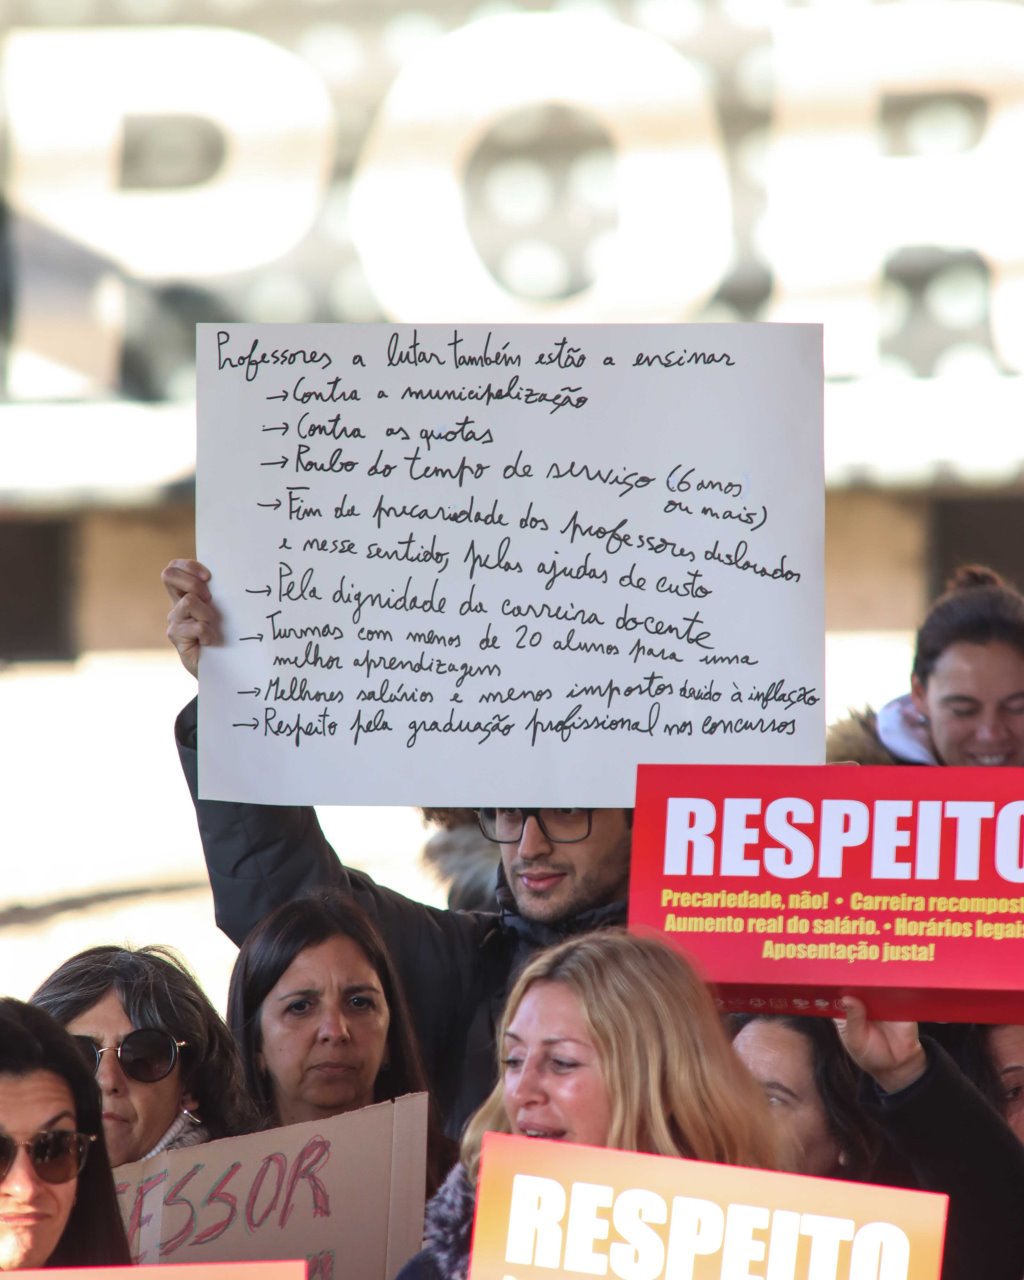 POR
Professores a lutar também estão a ensinar
→ Contra a municipalização
→ Contra as quotas
→ Roubo do tempo de serviço (6 anos
ou mais)
→ Fim da precariedade dos professores dislocados
e nesse sentido, pelas ajudas de custo
→ Pela dignidade da carreira docente
→ Turmas com menos de 20 alunos para uma
melhor aprendizagem
→ Melhores salários e menos impostos devido à inflação
→ Respeito pela graduação profissional nos concursos
RESPEITO
Precariedade, não! • Carreira recompost
Aumento real do salário. • Horários legais
Aposentação justa!
ESSOR
RESPEITO